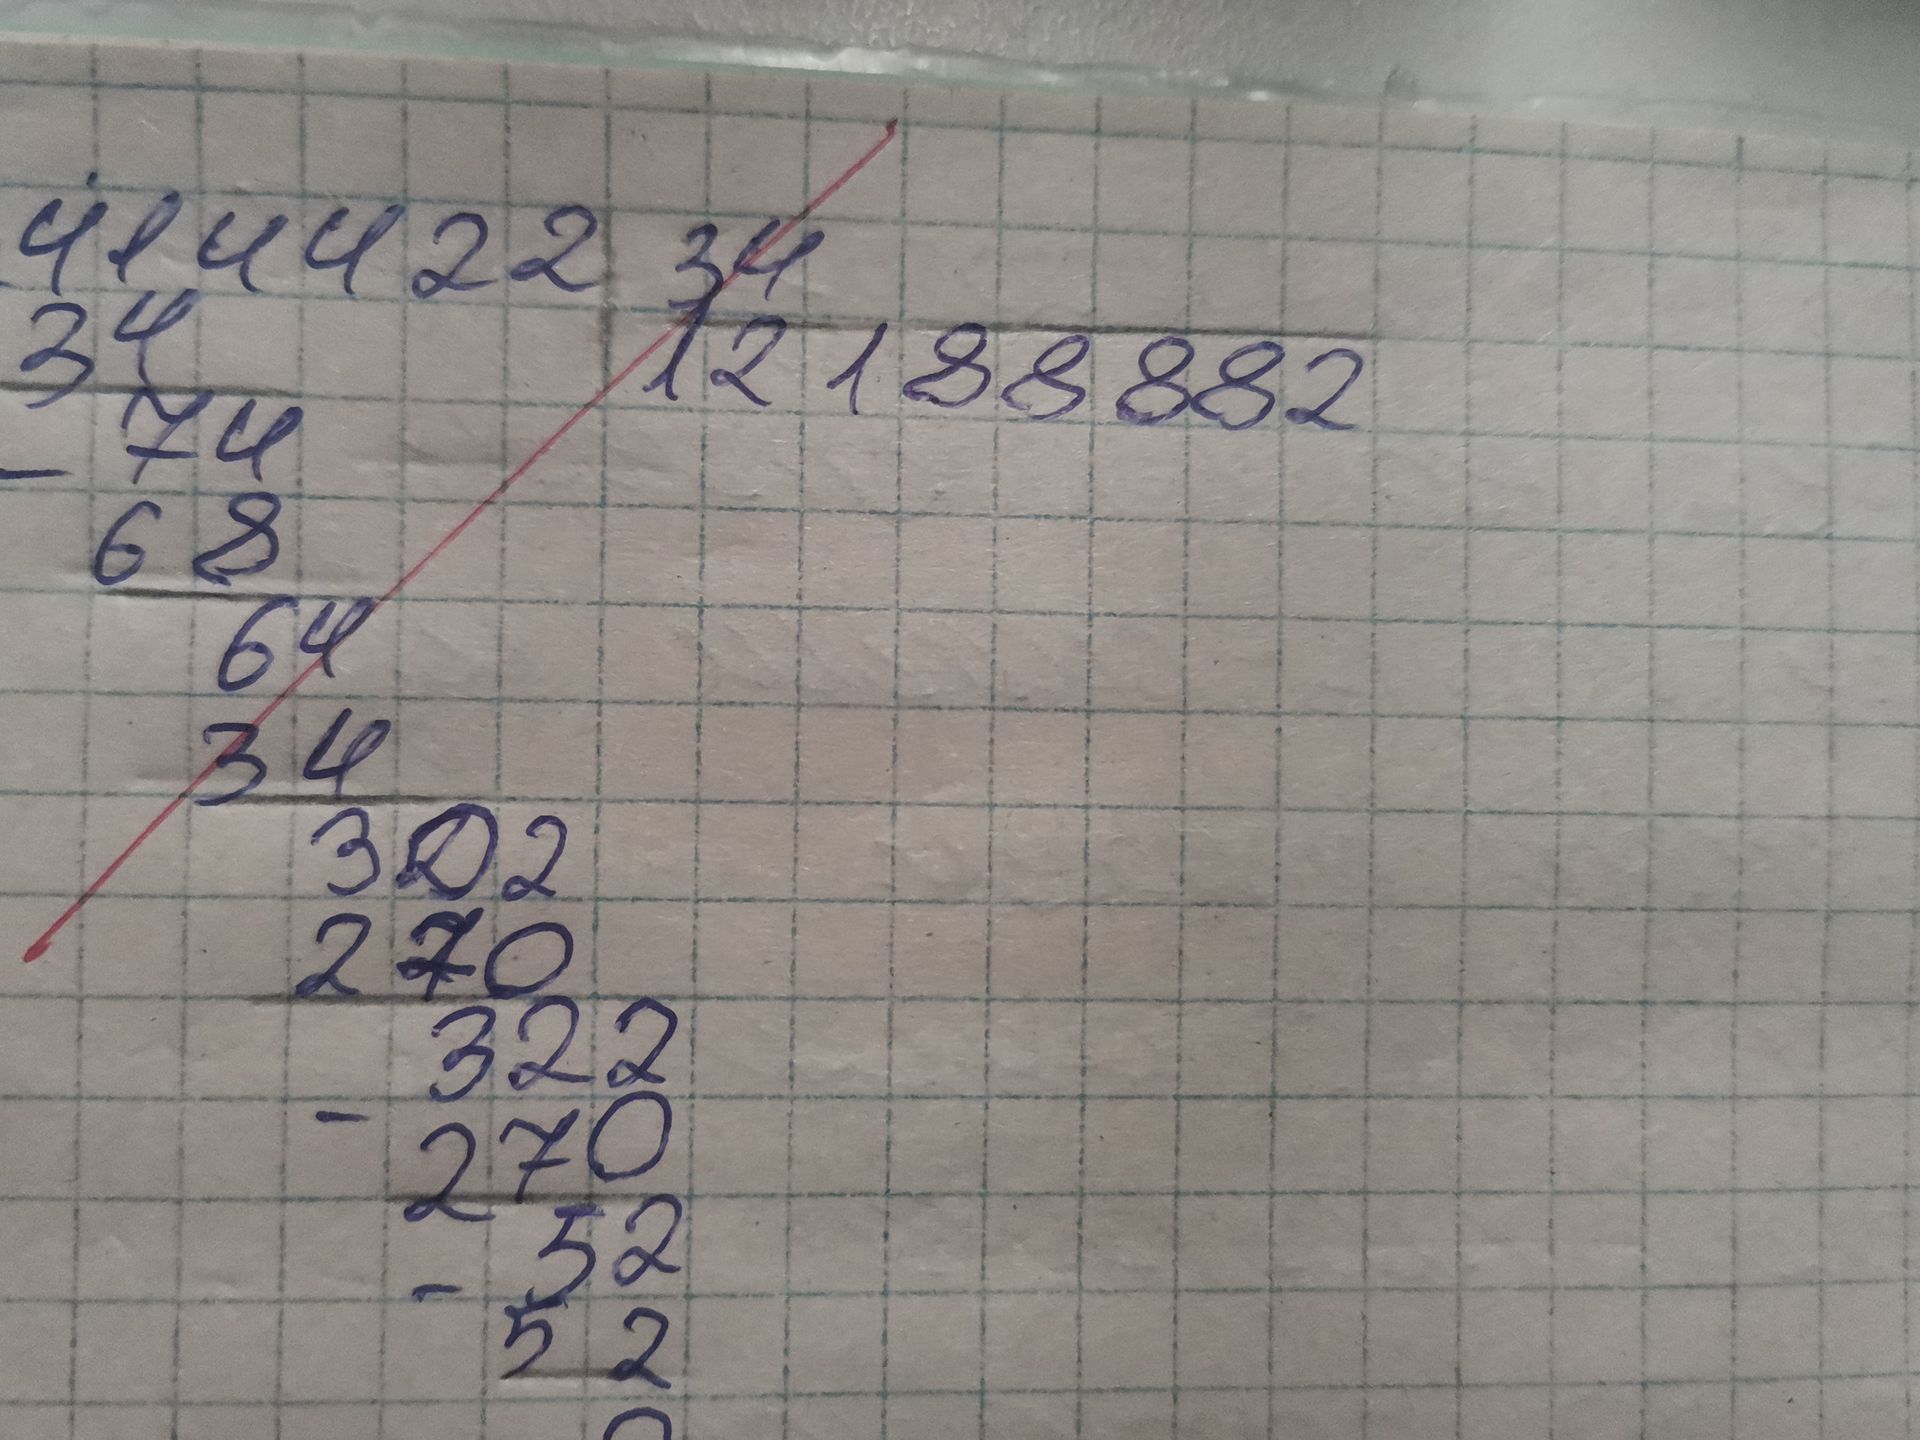 414422 34
34 12188882
- 74
68
64
34
302
270
322
- 270
52
- 52
0